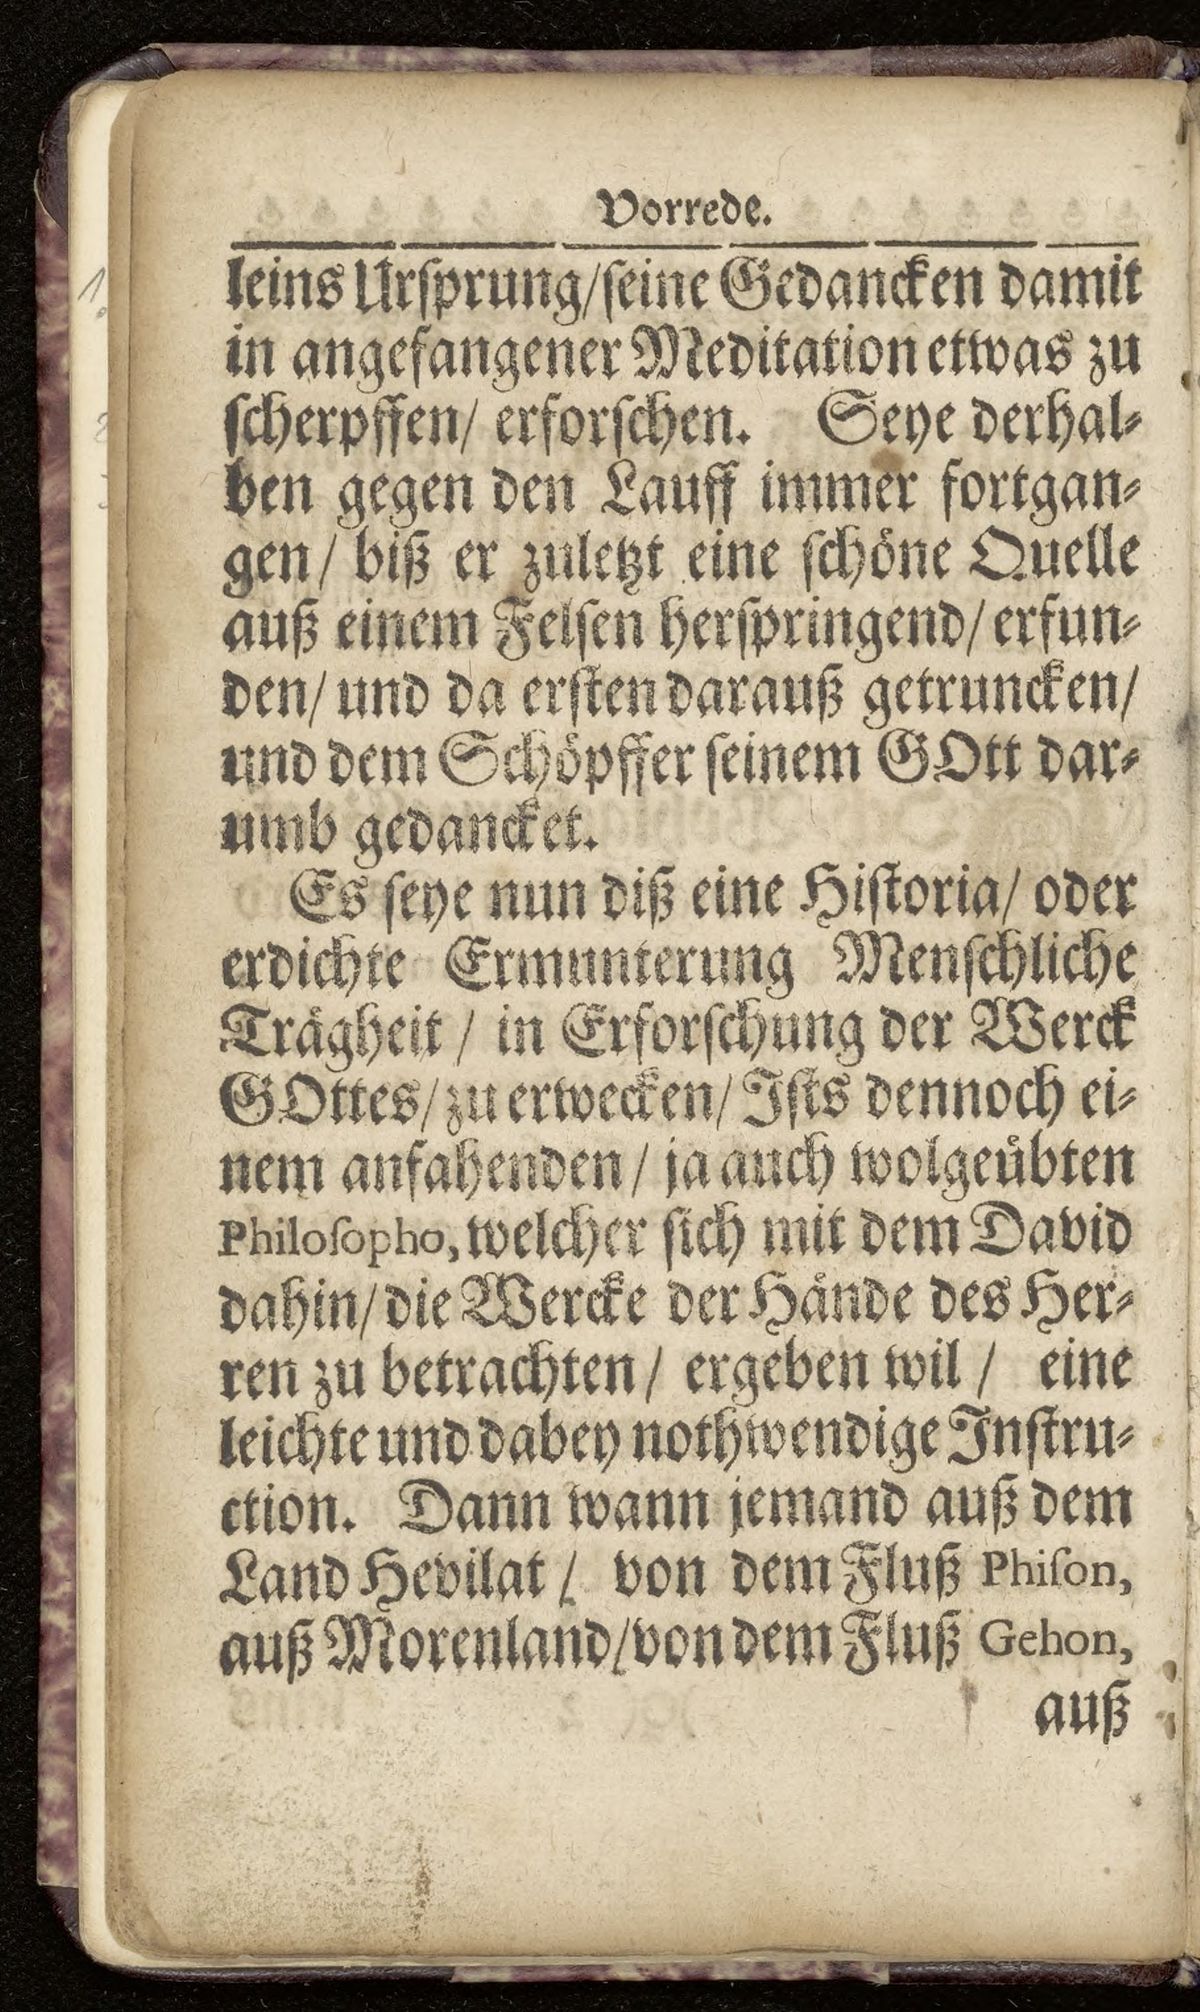 Vorrede.
leins Urſprung/ſeine Gedancken damit
in angefangener Meditation etwas zu
ſcherpffen/ erforſchen. Seye derhal-
ben gegen den Lauff immer fortgan-
gen/ biß er zuletzt eine ſchöne Quelle
auß einem Felſen herſpringend/ erfun-
den/ und da erſten darauß getruncken/
und dem Schöpffer ſeinem GOtt dar-
umb gedancket.
Es ſeye nun diß eine Hiſtoria/ oder
erdichte Ermunterung Menſchliche
Trägheit / in Erforſchung der Werck
GOttes/ zu erwecken/ Iſts dennoch ei-
nem anfahenden/ ja auch wolgeübten
Philoſopho, welcher ſich mit dem David
dahin/ die Wercke der Hände des Her-
ren zu betrachten/ ergeben wil / eine
leichte und dabey nothwendige Inſtru-
ction. Dann wann jemand auß dem
Land Hevilat / von dem Fluß Phiſon,
auß Morenland/ von dem Fluß Gehon,
auß